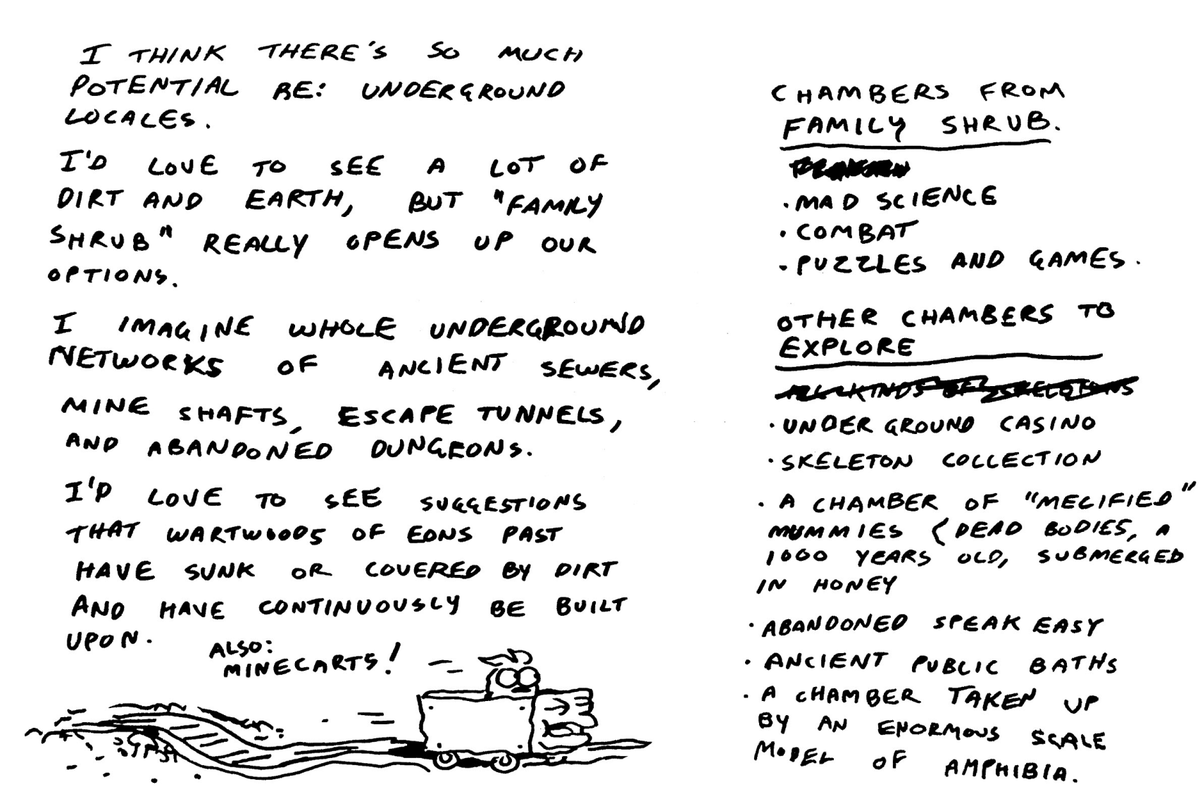 I THINK THERE'S SO MUCH
POTENTIAL RE: UNDERGROUND
LOCALES.
I'D LOVE TO SEE A LOT OF
DIRT AND EARTH, BUT "FAMILY
SHRUB" REALLY OPENS UP OUR
OPTIONS.
I IMAGINE WHOLE UNDERGROUND
NETWORKS OF ANCIENT SEWERS,
MINE SHAFTS, ESCAPE TUNNELS,
AND ABANDONED DUNGEONS.
I'D LOVE TO SEE SUGGESTIONS
THAT WARTWOODS OF EONS PAST
HAVE SUNK OR COVERED BY DIRT
AND HAVE CONTINUOUSLY BE BUILT
UPON.
ALSO:
MINECARTS!
CHAMBERS FROM
FAMILY SHRUB.
• MAD SCIENCE
• COMBAT
• PUZZLES AND GAMES.
OTHER CHAMBERS TO
EXPLORE
ALL KINDS OF SKELETONS
• UNDERGROUND CASINO
• SKELETON COLLECTION
• A CHAMBER OF "MELIFIED"
MUMMIES (DEAD BODIES, A
1000 YEARS OLD, SUBMERGED
IN HONEY
• ABANDONED SPEAK EASY
• ANCIENT PUBLIC BATHS
• A CHAMBER TAKEN UP
BY AN ENORMOUS SCALE
MODEL OF AMPHIBIA.